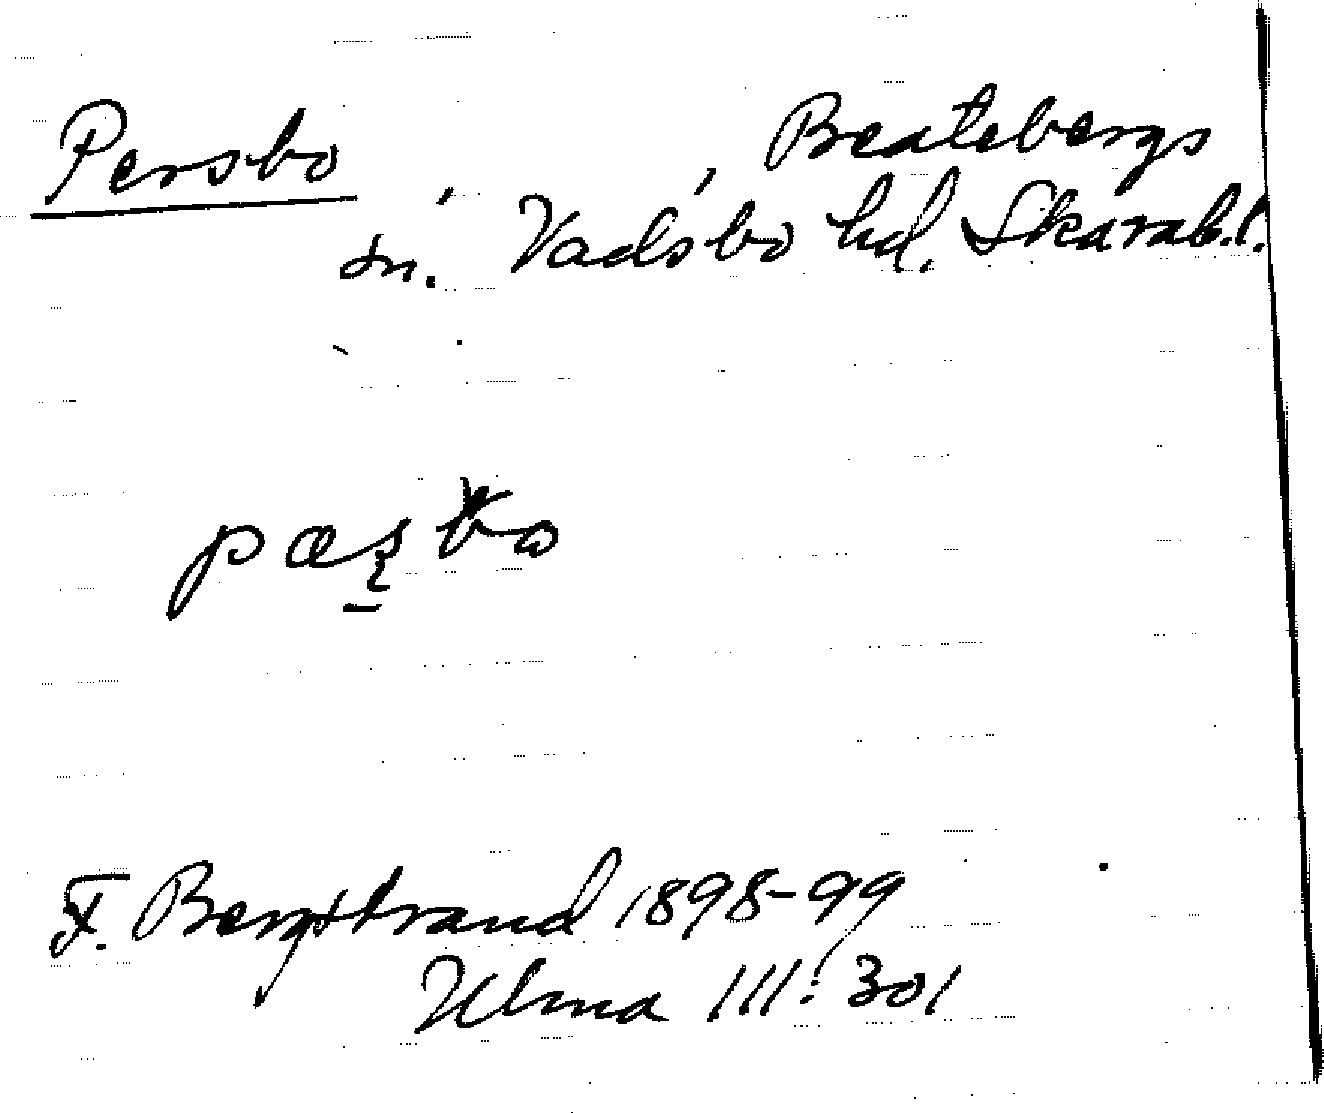 Persbo , , Beatebergs
sn. Vadsbo hd. Skarab.l.
F. Bergstrand 1898-99
Ulma 111:301